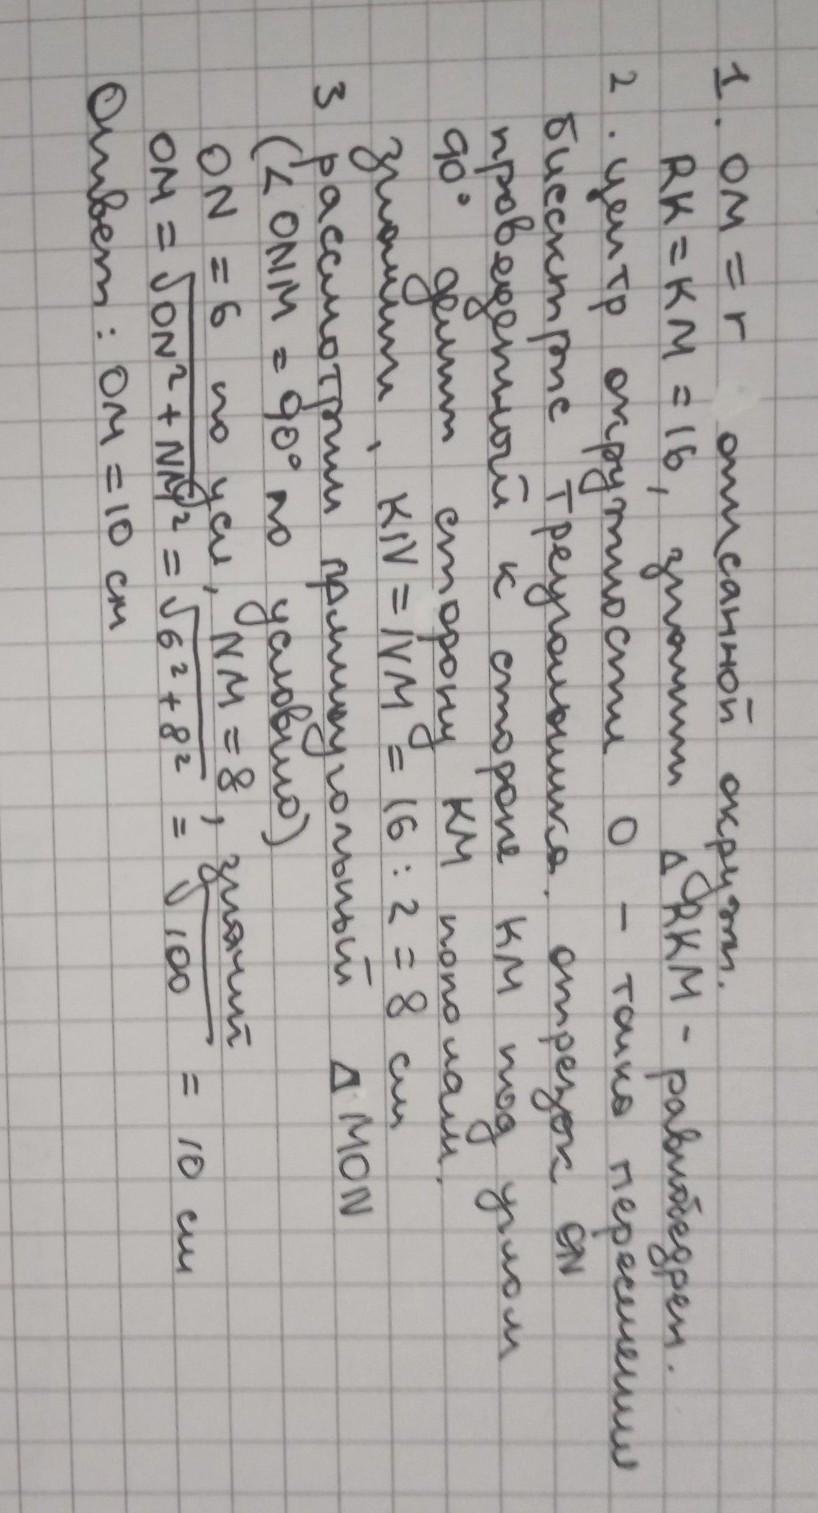 1. OM = r описанной окружн.
RK = KM = 16, значит ΔRKM - равнобедрен.
2. центр окружности O - точка пересечения
биссектрис треугольника. отрезок ON
проведенный к стороне KM под углом
90° делит сторону KM пополам.
значит, KN = NM = 16 : 2 = 8 см
3 рассмотрим прямоугольный Δ MON
(∠ ONM = 90° по условию)
ON = 6 по усл, NM = 8, значит
OM = √ON² + NM² = √6² + 8² = √100 = 10 см
Ответ: OM = 10 см